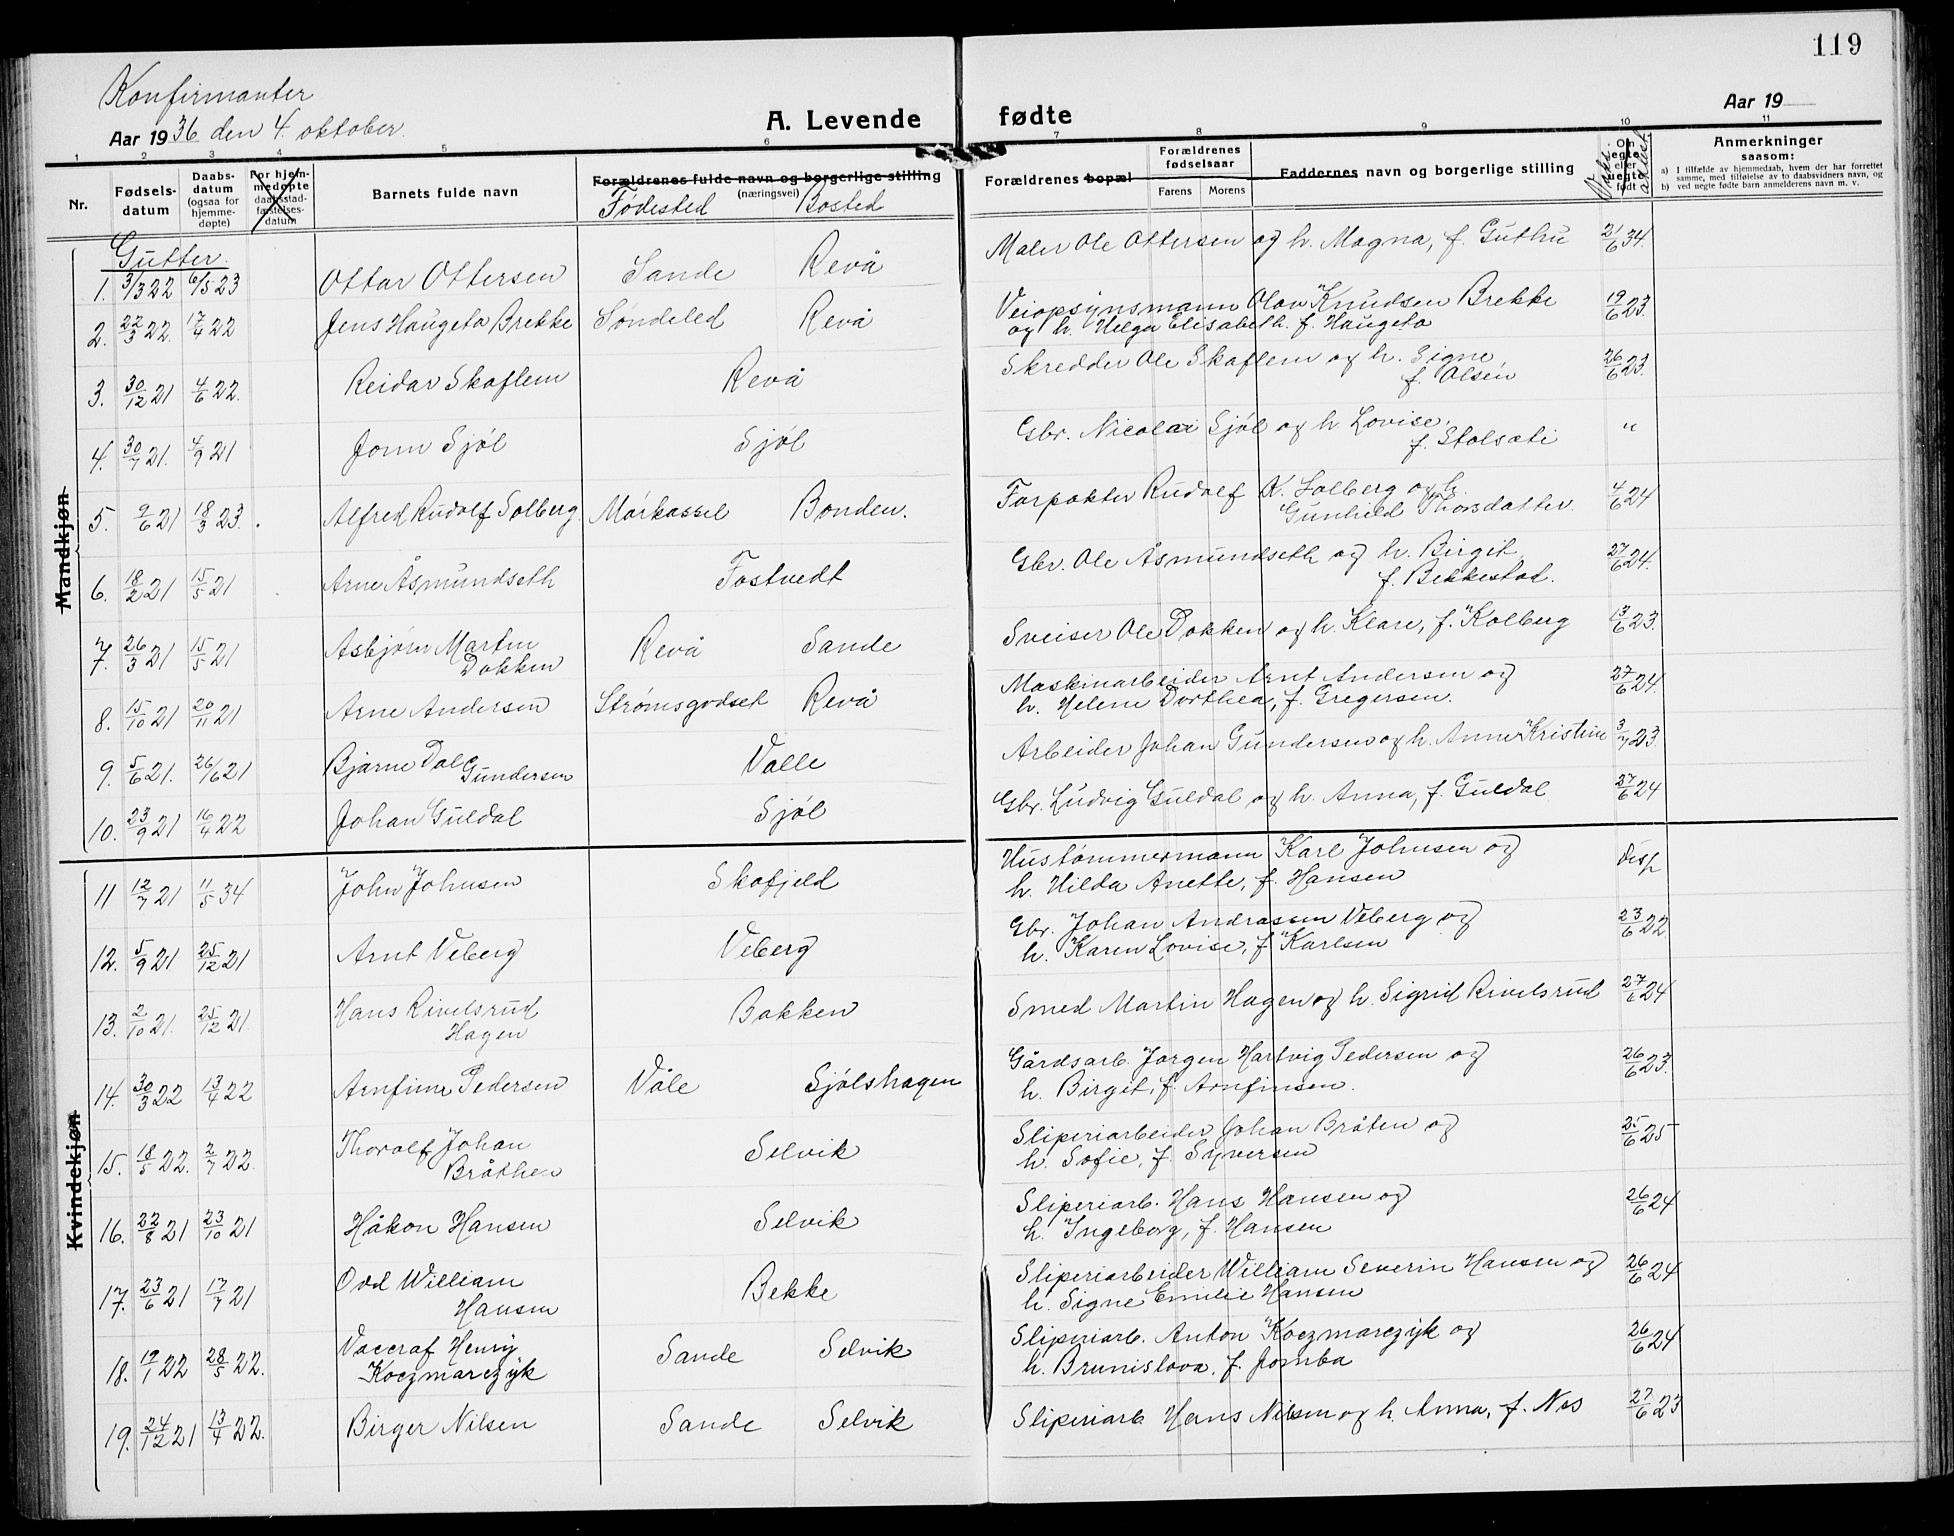 119
Konfirmanter
Aar 1936 den 4. oktober.
A. Levende fødte
Aar 19
1 2 3 4 5 6 7 8 9 10 11
Nr.
Fødsels-datum
Daabs-datum (ogsaa for hjemme-døpte)
For hjem-medøpte daabsstad-fæstelses-datum
Barnets fulde navn
Forældrenes fulde navn og borgerlige stilling
(næringsvei)
Fødested Bosted
Forældrenes bopæl
Forældrenes fødselsaar
Farens Morens
Faddernes navn og borgerlige stilling
Om egte eller uegte født
Anmerkninger
saasom:
a) I tilfælde av hjemmedaab, hvem der har forrettet samme, med tilføielse av to daabsvidners navn, og
b) ved uegte fødte barn anmelderens navn m. v.
Mandkjøn
Gutter.
1. 3/3 22 6/5 23 Ottar Ottersen Sande Revå Maler Ole Ottersen og h. Magna, f. Guthu 21/6 34.
2. 22/3 22. 17/4 22 Jens Haugeto Brekke Søndeled Revå Veiopsynsmann Olav Knudsen Brekke
og h. Helga Elisabeth. f. Haugeto 19/6 23.
3. 30/12 21 4/6 22. Reidar Skaflem Revå Skredder Ole Skaflem og h. Signe,
f. Olsen 26/6 23.
4. 30/7 21. 4/9 21 Jonn Sjøl Sjøl Gbr. Nicolai Sjøl og h. Lovise,
f. Stolsati "
5. 9/6 21 18/3 23. Alfred Rudolf Solberg. Mørkassel Bonden. Forpakter Rudolf K. Solberg og h.
Gunhild Thorsdatter. 4/6 24
6. 18/2 21 15/5 21 Arne Åsmundseth Fostvedt Gbr. Ole Åsmundseth og h. Birgit
f. Bekkestad. 27/6 24.
7. 26/3 21 15/5 21 Asbjørn Martin
Dokken Revå Sande Sveiser Ole Dokken og h. Klare, f. Kolberg 13/6 23.
8. 15/10 21 20/11 21 Arne Andersen Strømsgodset Revå Maskinarbeider Arnt Andersen og
h. Helene Dorthea, f. Gregersen. 27/6 24.
9. 5/6 21. 26/6 21 Bjarne Dal
Gundersen Valle Arbeider Johan Gundersen og h. Anne Kristine 3/7 23.
10. 23/9 21 16/4 22 Johan Guldal Sjøl Gbr. Ludvig Guldal og h. Anna, f. Guldal 27/6 24
Kvindekjøn
11 12/7 21 11/5 34 John Johnsen Skafjeld Hustømmermann Karl Johnsen og
h. Hilda Anette, f. Hansen disp
12. 5/9 21 25/12 21 Arnt Veberg Veberg Gbr. Johan Andrasen Veberg og
h. Karen Lovise, f. Karlsen 23/6 22.
13. 2/10 21. 25/12 21 Hans Rivelsrud
Hagen Bakken Smed Martin Hagen og h. Sigrid Rivelsrud 27/6 24
14. 30/3 22 13/4 22 Arnfinn Pedersen Våle Sjølshagen Gårdsarb. Jørgen Hartvig Pedersen og
h. Birgit, f. Arnfinsen. 26/6 23.
15. 18/5 22. 2/7 22. Thoralf Johan
Bråthen Selvik Sliperiarbeider Johan Bråten og
h. Sofie, f. Syversen 25/6 25
16. 22/8 21 23/10 21 Håkon Hansen Selvik Sliperiarb. Hans Hansen og
h. Ingeborg, f. Hansen 26/6 24
17. 23/6 21 17/7 21 Odd William
Hansen Bekke Sliperiarbeider William Severin Hansen og
h. Signe Emilie Hansen 26/6 24
18. 19/1 22 28/5 22. Vaccraf Henry
Koczmarczyk Sande Selvik Sliperiarb. Anton Koczmarczyk og
h. Brunislava, f. Jomba 26/6 24
19. 24/12 21 13/4 22. Birger Nilsen Sande Selvik Sliperiarb. Hans Nilsen og h. Anna, f. Nes 27/6 23